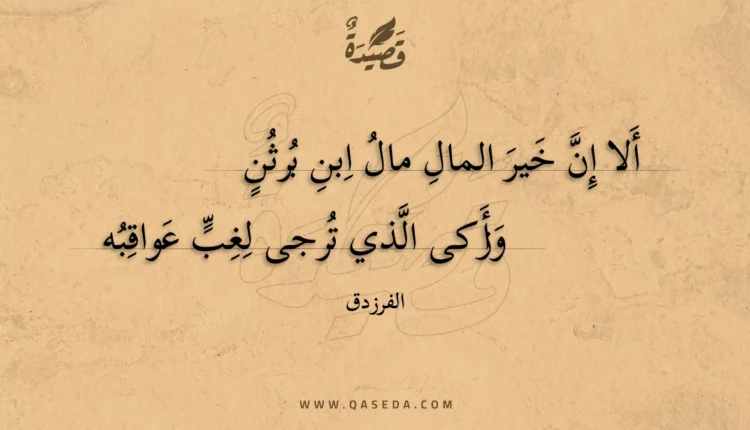 قَصِيْدَةٌ
أَلا إِنَّ خَيرَ المالِ مالُ اِبنِ بُرثُنٍ
وَأَزكى الَّذي تُرجى لِغِبٍّ عَواقِبُه
الفرزدق
WWW.QASEDA.COM